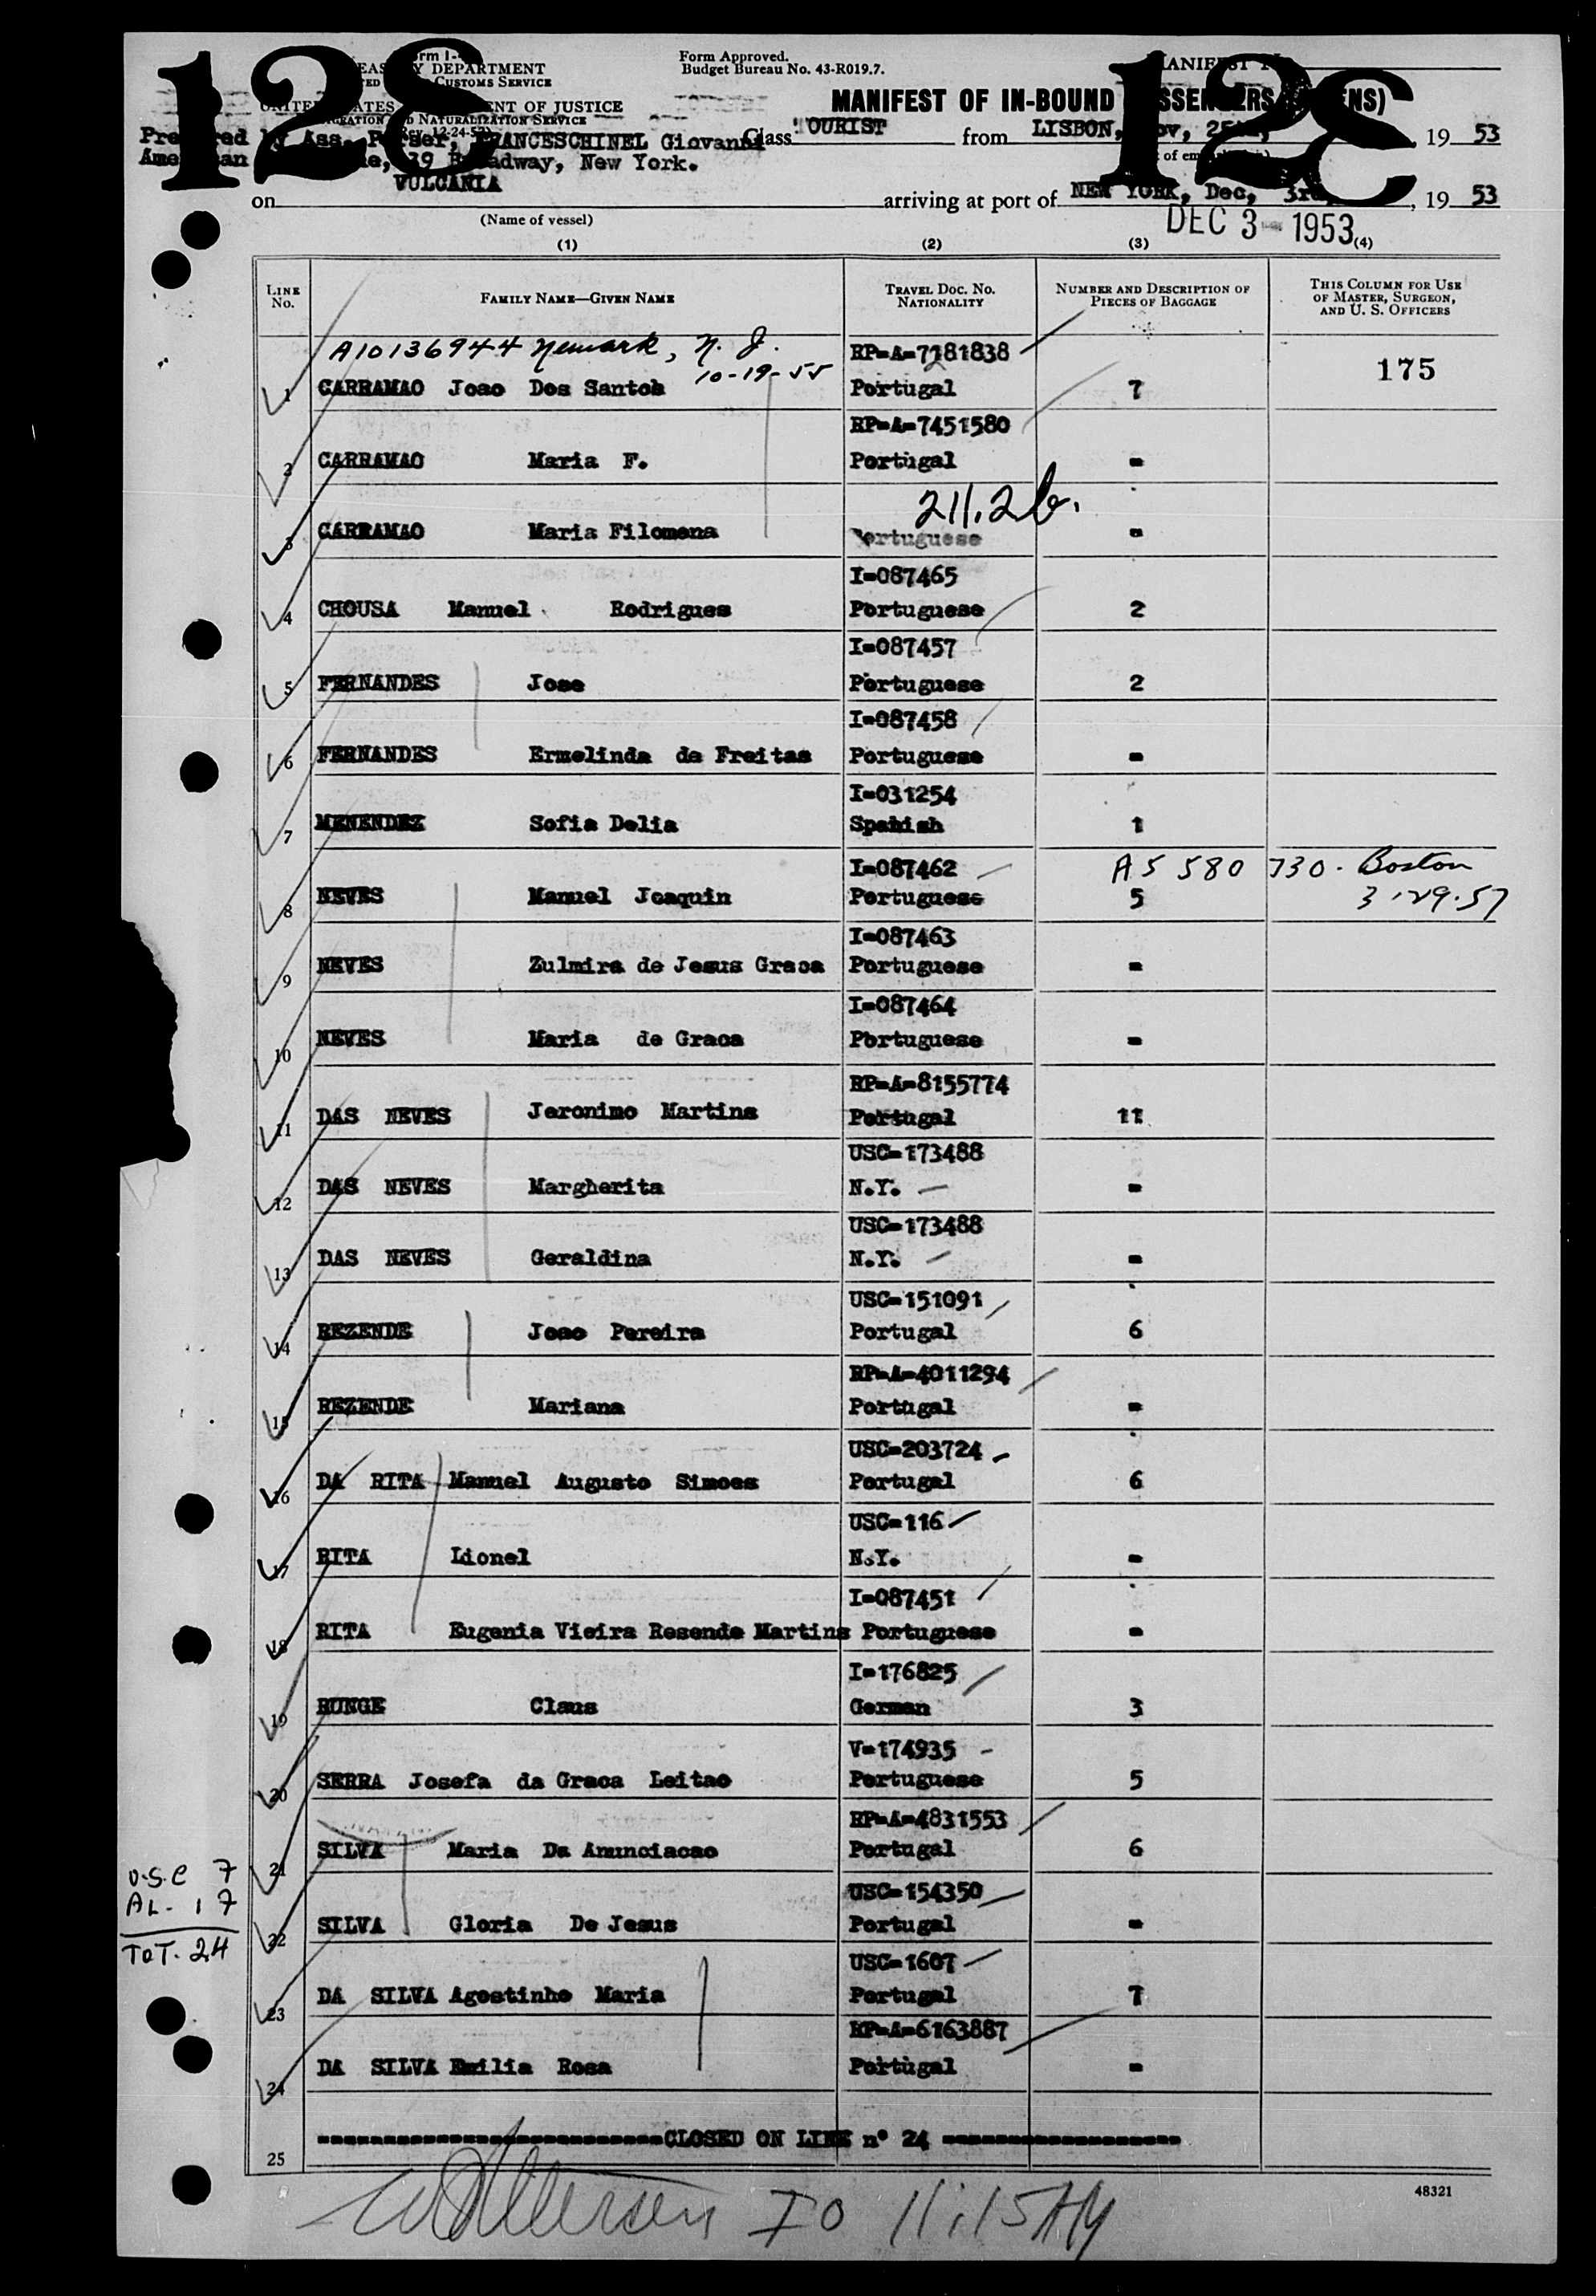 128
128
Form Approved.
Budget Bureau No. 43-R019.7.
DEPARTMENT
CUSTOMS SERVICE
OF JUSTICE
NATURALIZATION SERVICE
MANIFEST OF IN-BOUND
Ass. FRANCESCHINEL Giovanni
39 New York.
Class OURIST from LISBON, 19 53
on VULCANIA arriving at port of NEW YORK, Dec, 19 53
(Name of vessel)
DEC 3 - 1953
(1) (2) (3) (4)
LINE No. FAMILY NAME—GIVEN NAME TRAVEL DOC. NO. NATIONALITY NUMBER AND DESCRIPTION OF PIECES OF BAGGAGE THIS COLUMN FOR USE OF MASTER, SURGEON, AND U. S. OFFICERS
A10136944 Newark, N. J. RP=A=7181838
10-19-55 175
1 CARRAMAO Joao Dos Santos Portugal 7
RP=A=7451580
2 CARRAMAO Maria F. Portugal =
211.2b.
3 CARRAMAO Maria Filomena Portuguese =
I=087465
4 CHOUSA Manuel Rodrigues Portuguese 2
I=087457
5 FERNANDES Jose Portuguese 2
I=087458
6 FERNANDES Ermelinda de Freitas Portuguese =
I=031254
7 MENENDEZ Sofia Delia Spanish 1
I=087462 A5 580 730. Boston
8 NEVES Manuel Joaquin Portuguese 5 3.29.57
I=087463
9 NEVES Zulmira de Jesus Graca Portuguese =
I=087464
10 NEVES Maria de Graca Portuguese =
RP=A=8155774
11 DAS NEVES Jeronimo Martins Portugal 11
USC=173488
12 DAS NEVES Margherita N.Y. =
USC=173488
13 DAS NEVES Geraldina N.Y. =
USC=151091
14 REZENDE Joao Pereira Portugal 6
RP=A=4011294
15 REZENDE Mariana Portugal =
USC=203724
16 DA RITA Manuel Augusto Simoes Portugal 6
USC=116
17 RITA Lionel N.Y. =
I=087451
18 RITA Eugenia Vieira Resende Martins Portuguese =
I=176825
19 RUNGE Claus German 3
V=174935
20 SERRA Josefa da Graca Leitao Portuguese 5
RP=A=4831553
21 SILVA Maria Da Anunciacao Portugal 6
USC=154350
22 SILVA Gloria De Jesus Portugal =
USC=1607
23 DA SILVA Agostinho Maria Portugal 7
RP=A=6163887
24 DA SILVA Emilia Rosa Portugal =
U.S.C 7
AL- 17
TOT. 24
25 CLOSED ON LINE nº 24
48321
IO 11:15 AM